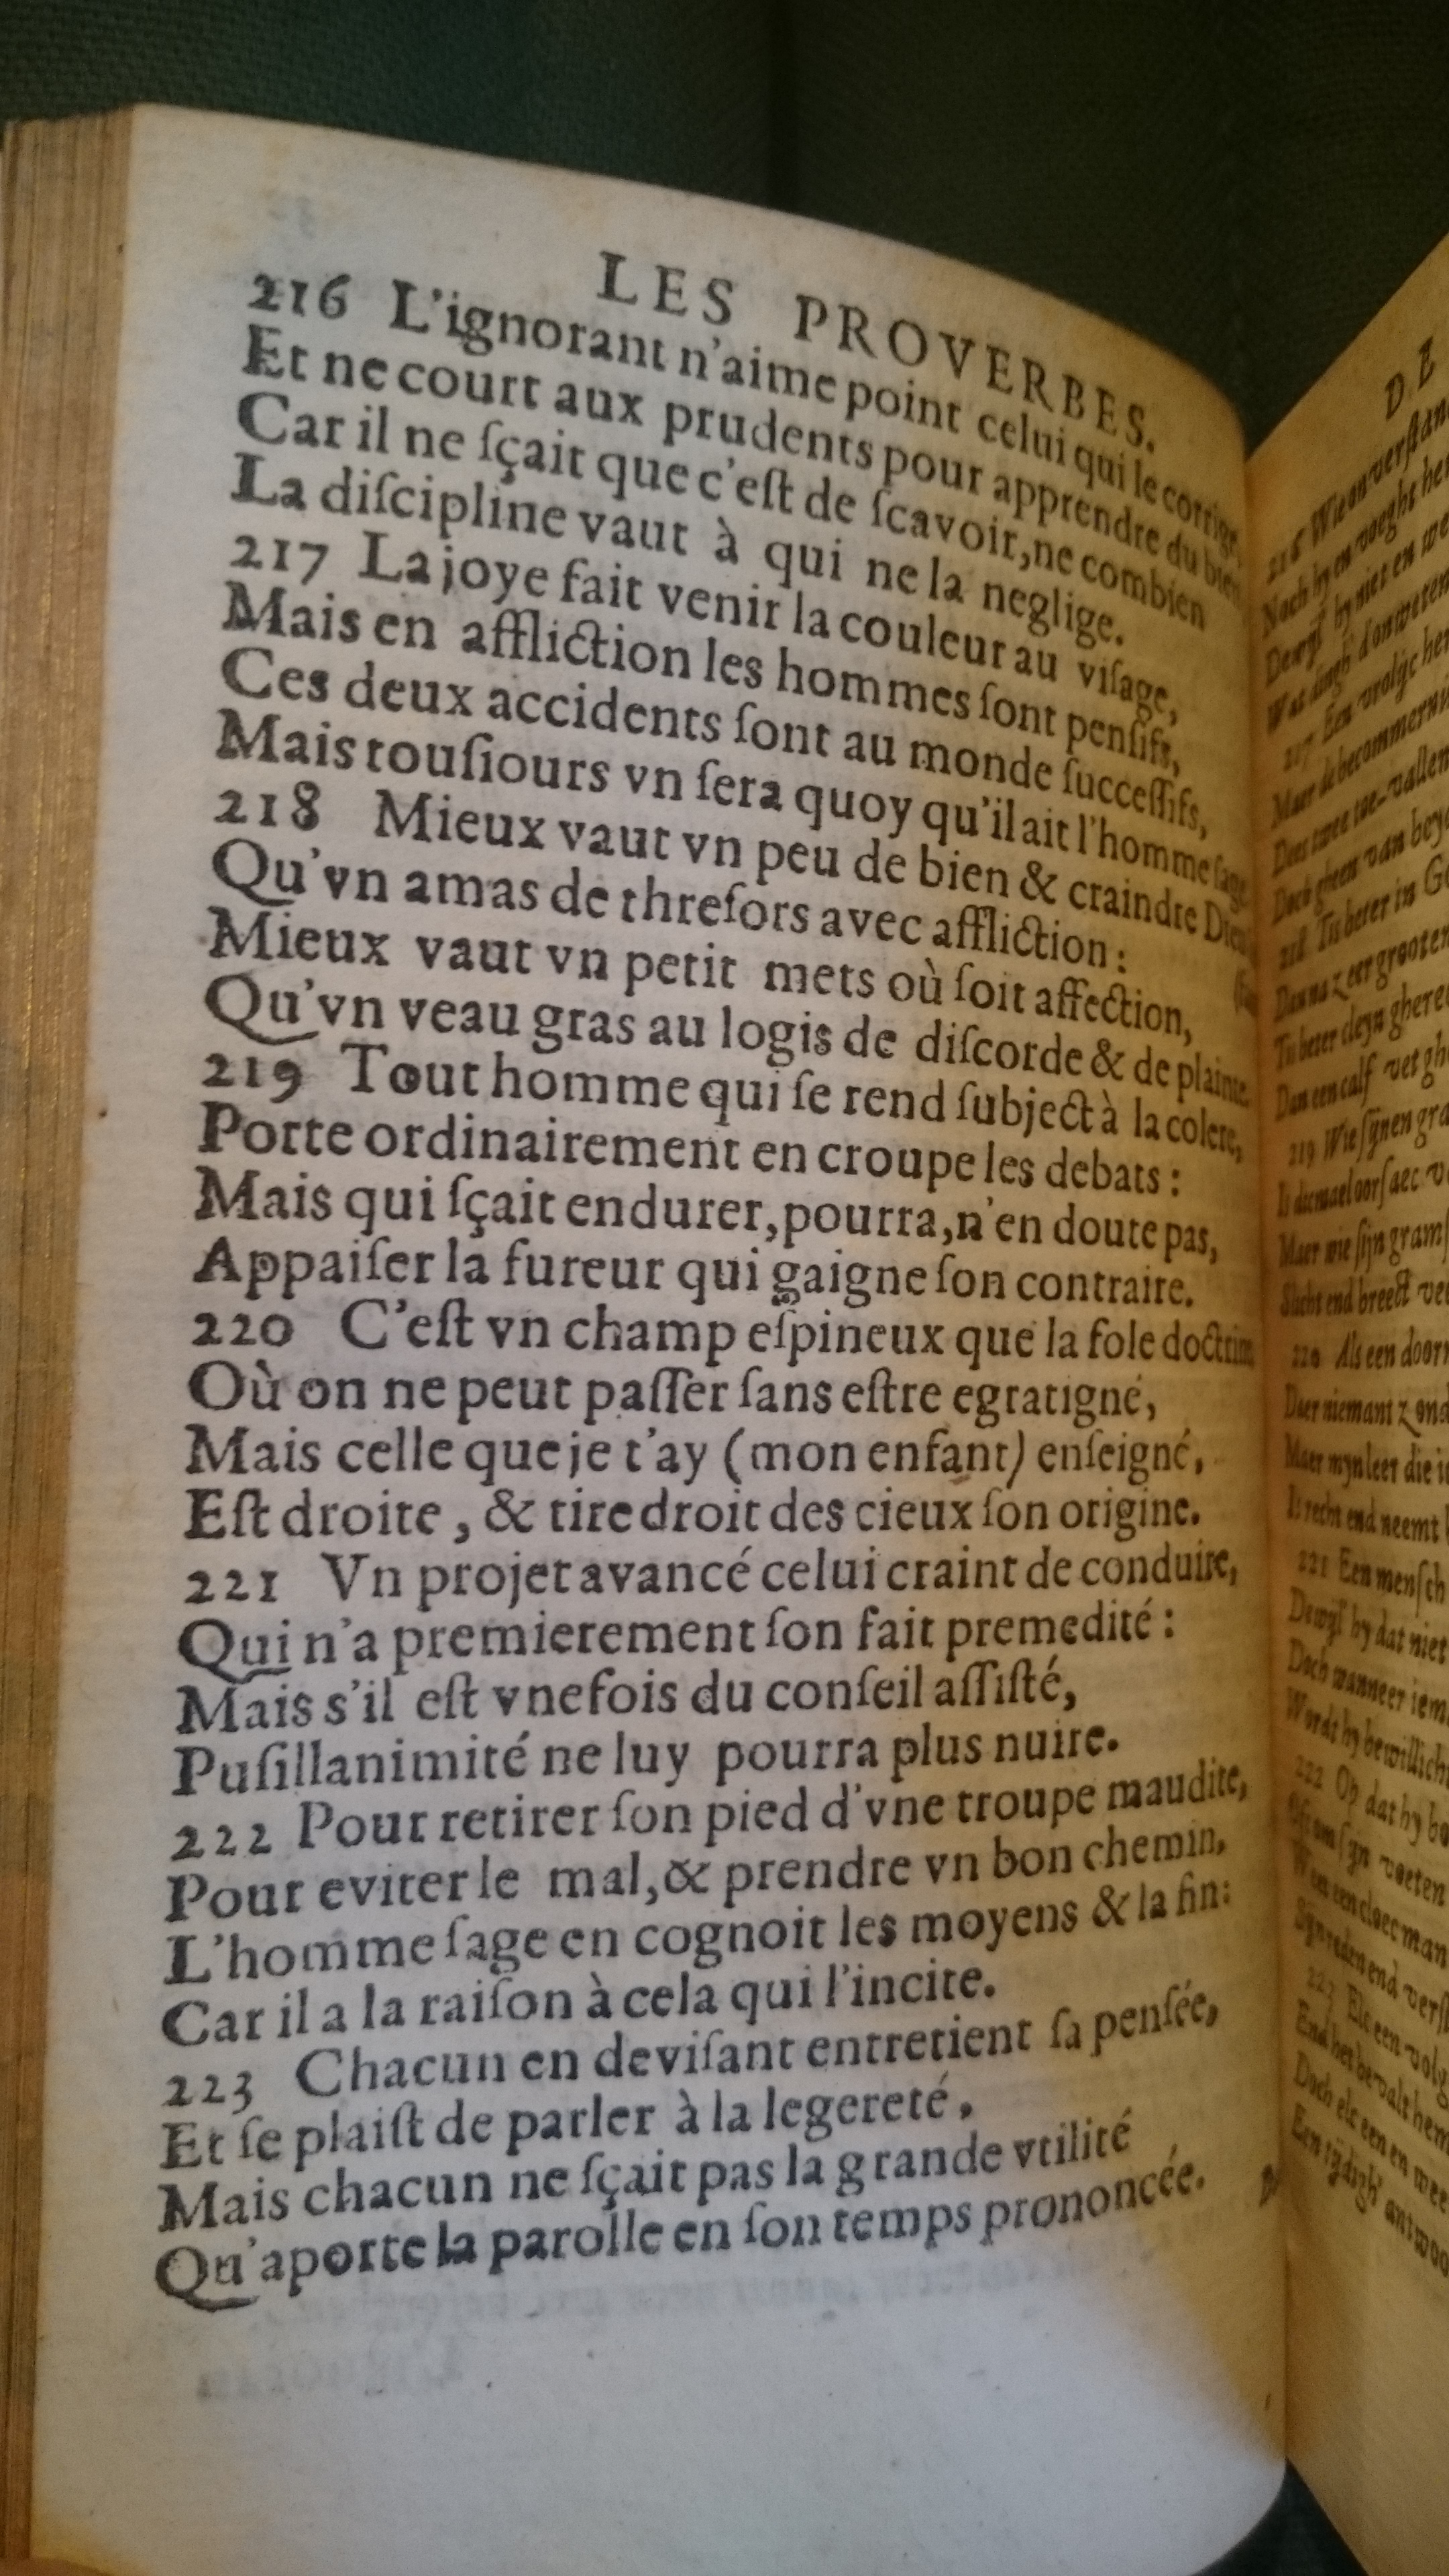 LES PROVERBES.
216 L'ignorant n'aime point celui qui le corrige,
Et ne court aux prudents pour apprendre du bien
Car il ne ſçait que c'eſt de ſcavoir, ne combien
La diſcipline vaut à qui ne la neglige.
217 La joye fait venir la couleur au viſage,
Mais en affliction les hommes ſont penſifs,
Ces deux accidents ſont au monde ſucceſſifs,
Mais touſiours vn ſera quoy qu'il ait l'homme ſage.
218 Mieux vaut vn peu de bien & craindre Dieu
Qu'vn amas de threſors avec affliction:
Mieux vaut vn petit mets où ſoit affection,
Qu'vn veau gras au logis de diſcorde & de plainte.
219 Tout homme qui ſe rend ſubject à la colere,
Porte ordinairement en croupe les debats:
Mais qui ſçait endurer, pourra, n'en doute pas,
Appaiſer la fureur qui gaigne ſon contraire.
220 C'eſt vn champ eſpineux que la fole doctrine
Où on ne peut paſſer ſans eſtre egratigné,
Mais celle que je t'ay (mon enfant) enſeigné,
Eſt droite, & tire droit des cieux ſon origine.
221 Vn projet avancé celui craint de conduire,
Qui n'a premierement ſon fait premedité:
Mais s'il eſt vne fois du conſeil aſſiſté,
Puſillanimité ne luy pourra plus nuire.
222 Pour retirer ſon pied d'vne troupe maudite,
Pour eviter le mal, & prendre vn bon chemin,
L'homme ſage en cognoit les moyens & la fin:
Car il a la raiſon à cela qui l'incite.
223 Chacun en deviſant entretient ſa penſée,
Et ſe plaiſt de parler à la legereté,
Mais chacun ne ſçait pas la grande vtilité
Qu'aporte la parolle en ſon temps prononcée.
DE
216 Wie onverſtan
Noch hy en voeght he
Dewijl hy niet en we
217 Een vrolijc he
Maer de becommerni
Dees twee toe-vallen
Doch gheen van bey
218 Tis beter in G
Dan na zeer grooten
Tis beter cleyn ghere
Dan een calf vet gh
219 Wie ſijnen gra
Maer wie ſijn gramſ
220 Als een door
Daer niemant zond
Maer mijn leer die i
Is recht end neemt
221 Een menſch
Dewijl hy dat niet
Doch wanneer iem
Wordt hy bewillich
222 Op dat hy bo
223 Elc een volg
End het bevalt hem
Doch elc een en wee
Een tijdigh' antwoo